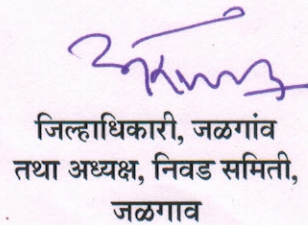 जिल्हाधिकारी, जळगांव
तथा अध्यक्ष, निवड समिती,
जळगाव